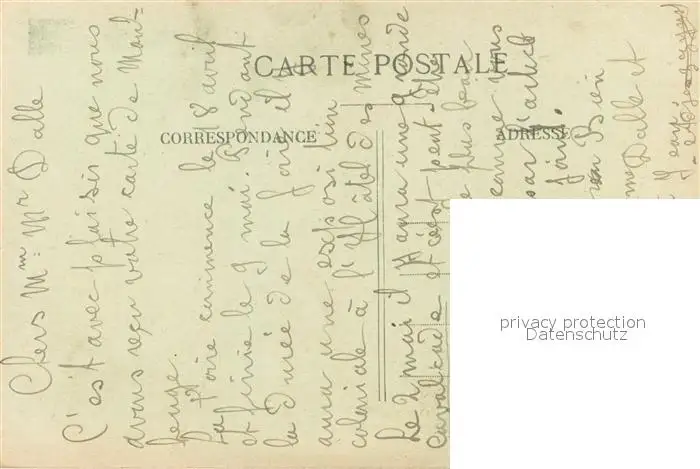 CARTE POSTALE
CORRESPONDANCE
ADRESSE
Chers Mm: Mr Dalle
C'est avec plaisir que nous
avons reçu votre carte de Mau-
beuge.
La foire commence le 18 avril
et finie le 9 mai. Pendant
la durée de la foire il y
aura une exposition
coloniale à l'Hôtel des mines
Le 2 mai il y aura une grande
cavalcade et c'est peut être
plus
comme vous
par
Bien
mme Dalle et
privacy protection
Datenschutz